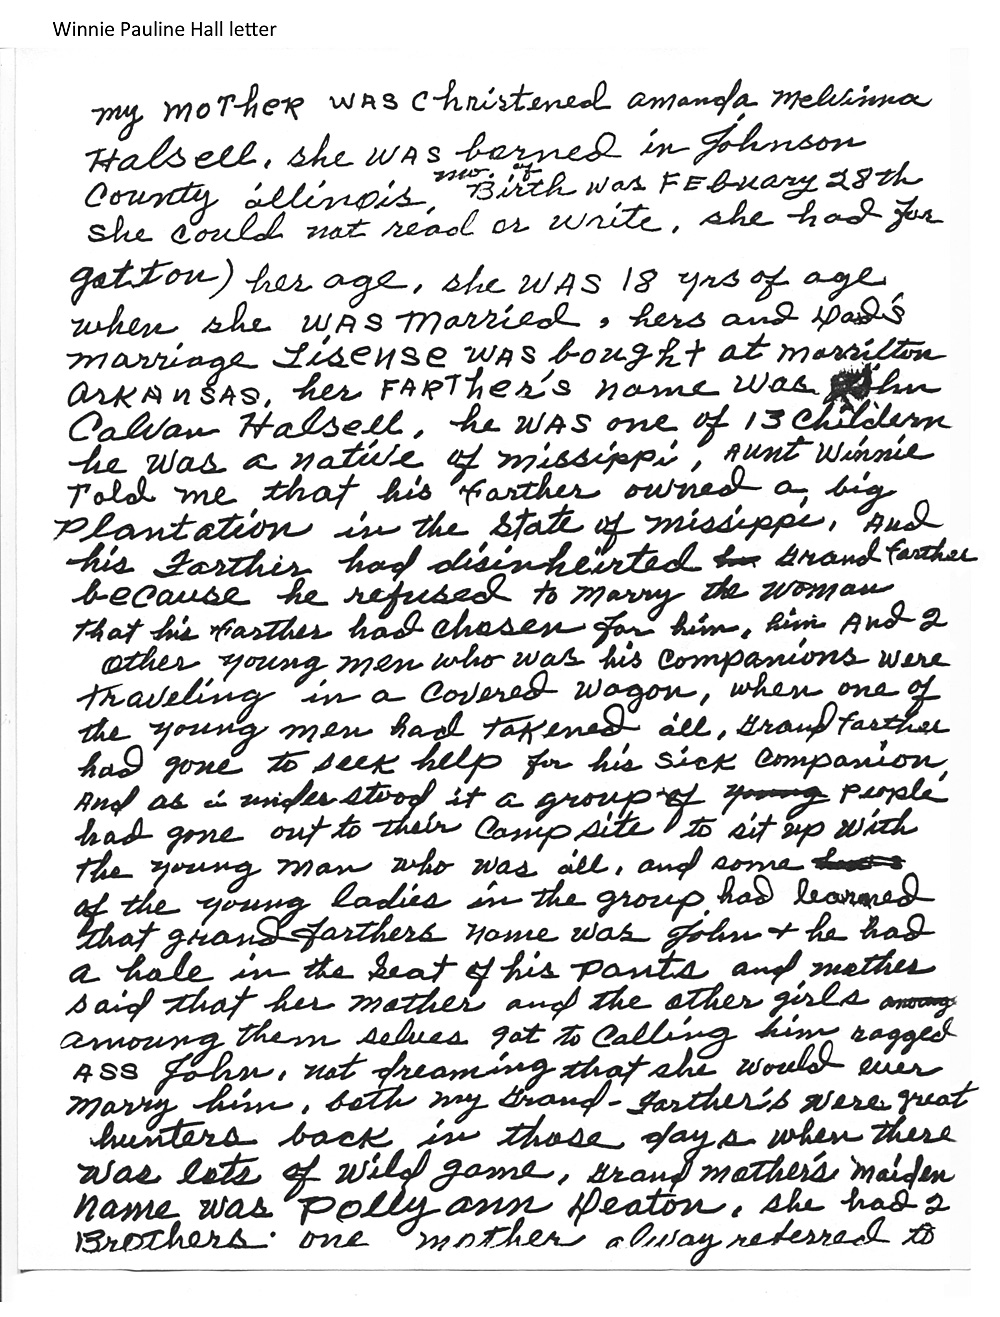 Winnie Pauline Hall letter
my moTheR WAS Christened amanda Melvinna
Halsell, she WAS borned in Johnson
County illinois, mo. of Birth was FEbuary 28th
she could not read or write, she had for
gotton) her age, she WAS 18 yrs of age
when she WAS Married, hers and Dad's
marriage Lisense WAS bought at morrilton
ARKANSAS, her FARTher's name was John
Calvan Halsell, he WAS one of 13 Childern
he was a native of missippi, Aunt Winnie
Told me that his Farther owned a big
Plantation in the State of missippi, And
his Farther had disinheirted his Grand farther
because he refused to marry the woman
that his Farther had chosen for him, him And 2
other young men who was his companions were
traveling in a Covered wagon, when one of
the young men had takened ill, Grand Farther
had gone to seek help for his sick Companion,
And as i understood it a group of young People
had gone out to their Camp site to sit up with
the young man who was ill, and some
of the young ladies in the group had learned
that grand farthers name was John + he had
a hole in the seat of his pants and mother
said that her mother and the other girls among
amoung them selves got to Calling him ragged
ASS John, not dreaming that she would ever
marry him, both my Grand-Farther's were great
hunters back in those days when there
was lots of wild game, Grand mother's Maiden
Name was Polly ann Deaton, she had 2
Brothers. one mother alway referred to